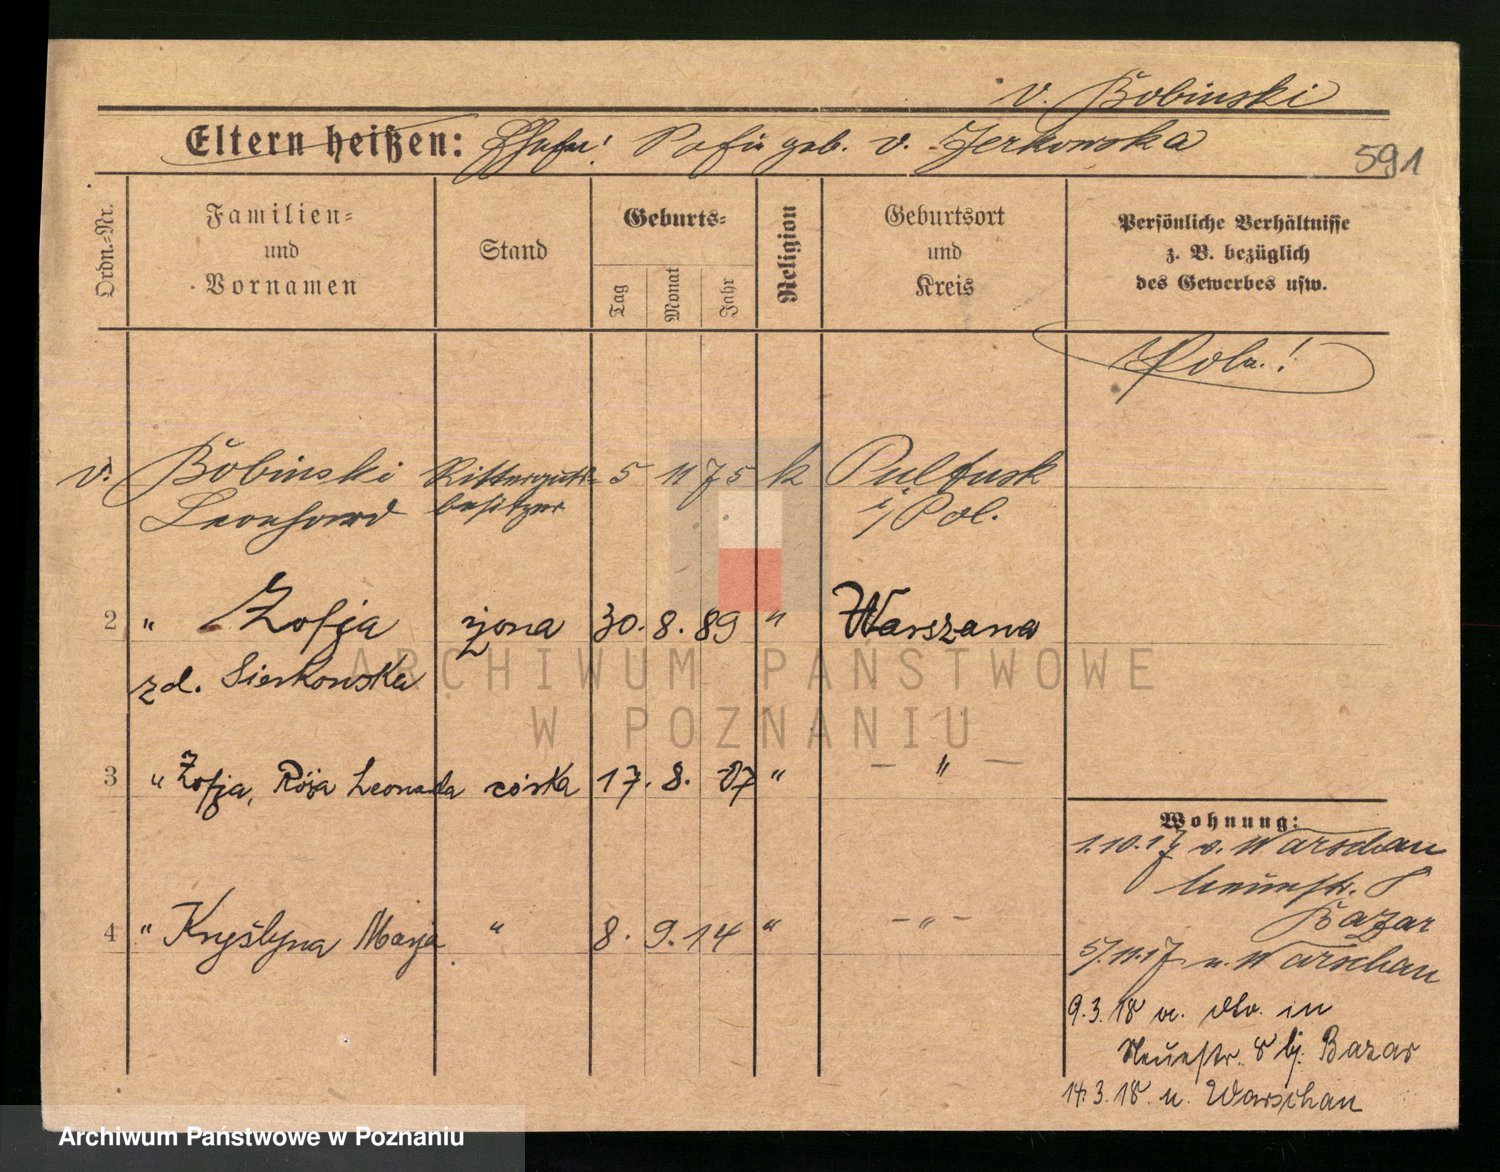 v. Bobinski
Eltern heißen: Ehefr! Sofie geb. v. Jerkowska
591
Ordn.-Nr.
Familien-
und
Vornamen
Stand
Geburts-
Tag
Monat
Jahr
Religion
Geburtsort
und
Kreis
Persönliche Verhältnisse
z. B. bezüglich
des Gewerbes usw.
Pole!
v. Bobinski Ritterguts- 5 11 75 k Pultusk
Leonhard besitzer i/ Pol.
2 " Zofja żona 30. 8. 89 " Warszawa
zd. Sierkowska
3 " Zofja, Róża Leonarda córka 17. 8. 07 " — " —
4 " Kryslyna Marja " 8. 9. 14 " – " –
Wohnung:
1.10.17 v. Warschau
Neuestr. 8
Bazar
5/11.17 n. Warschau
9.3.18 v. dto. in
Neuestr. 8 bj. Bazar
14.3.18. n. Warschau
ARCHIWUM PAŃSTWOWE
W POZNANIU
Archiwum Państwowe w Poznaniu